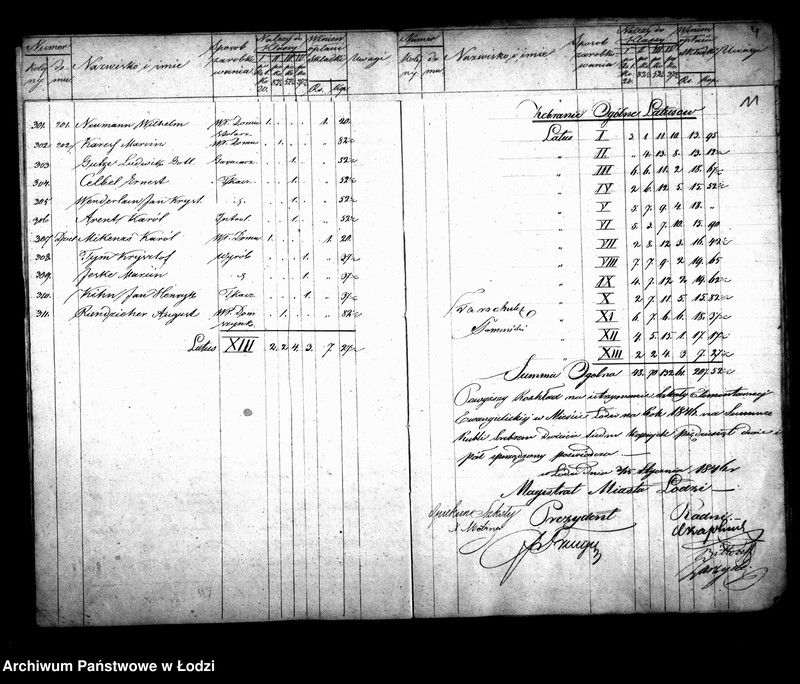 Numer
kolejny
domu
Nazwisko i imie
Sposób zarobkowania
Należy do klassy
I II III IV
Winien opłacić składki
Rs. Kop.
Uwagi
301. 201. Neumann Wilhelm Wł. Domu 1. 1. 20.
302 202 Karch Marcin Wł. Domu 1. 82½
303 Gutze Ludwik Gotl. 1. 52½
304. Celbel Ernest Tkacz 1. 52½
305 Wenderlain Jan Kryst. 1. 52½
306 Arent Karól Introl. 1. 52½
307 Mikenas Karól Wł. Domu 1. 1. 20
308. Tym Krysztof Wyrób 1. 37½
309. Jeske Marcin 1. 37½
310. Kühn Jan Henryk Tkacz 1. 37½
311. Rundzieher August Wł. Dom 1. 82½
szynk.
Latus XIII 2. 2. 4. 3. 7. 27½
Numer
kolejny
domu
Nazwisko i imie
Sposób zarobkowania
Należy do klassy
I II III IV
Winien opłacić składki
Rs. Kop.
Uwagi
11
Zebranie Ogólne Latusów
Latus I 3. 1. 11. 10. 13. 95
II 4. 13. 8. 13. 12½
III 6. 6. 11. 2. 18. 67½
IV 2. 6. 12. 5. 15. 52½
V 5. 7. 9. 4. 18.
VI 5. 3. 7. 10. 15. 90
VII 2. 8. 12. 3. 16. 42½
VIII 7. 7. 9. 2. 19. 65
IX 4. 7. 12. 2. 19. 62½
X 2. 7. 11. 5. 15. 82½
XI 6. 7. 6. 6. 18. 37½
XII 4. 5. 15. 1. 17. 17½
XIII 2. 2. 4. 3. 7. 27½
Summa Ogólna 48. 70. 132. 61. 207. 52½
Powyższy Rozkład na utrzymanie Szkoły Elementarnej
Ewangelickiej w Mieście Łodzi na Rok 1846 na Summę
Rubli Srebrem Dwieście siedm kopiejek pięćdziesiąt dwie i
pół sporządzony poświadcza
w Łodzi dnia Stycznia 1846 r
Magistrat Miasta Łodzi
Opiekun Szkoły
Prezydent
Radni
Archiwum Państwowe w Łodzi